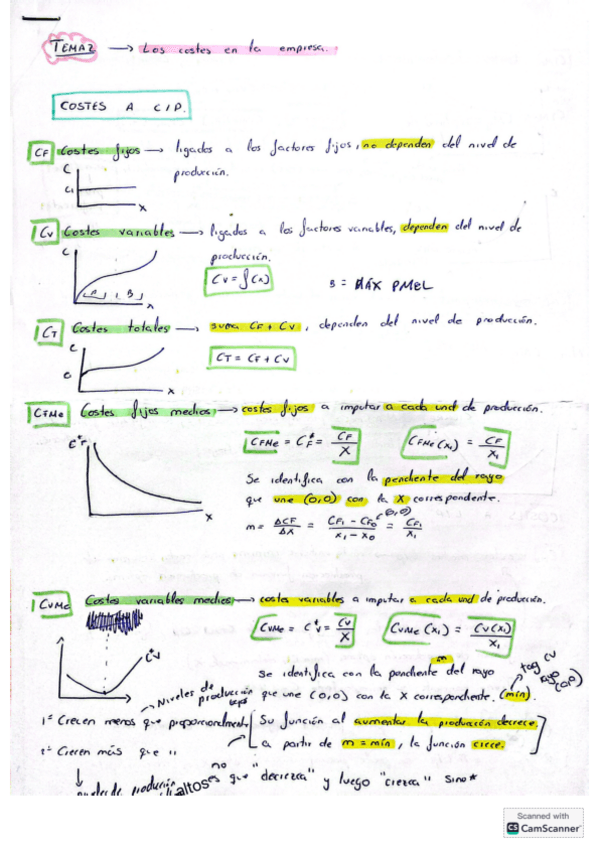 TEMA 2 → Los costes en la empresa.
COSTES A C/P.
CF Costes fijos → ligados a los factores fijos, no dependen del nivel de
producción.
C
C₁
X
CV Costes variables → ligados a los factores variables, dependen del nivel de
producción.
C
CV = f(x)
B = MÁX PMEL
A B
CT Costes totales → suma CF + CV, dependen del nivel de producción.
C
CT = CF + CV
X
CFMe Costes fijos medios → costes fijos a imputar a cada und de producción.
C*F
CFMe = C*F = CF/X
CFMe(x₁) = CF/X₁
Se identifica con la pendiente del rayo
que une (0,0) con la X correspondente.
X
(0,0)
m = ΔCF/ΔX = CF₁ - CF₀/X₁ - X₀ = CF₁/X₁
CVMe Costes variables medios → costes variables a imputar a cada und de producción.
CVMe = C*V = CV/X
CVMe(x₁) = CV(x₁)/X₁
C*V
m
Se identifica con la pendiente del rayo
tag CV
rayo
(0,0)
que une (0,0) con la X correspondente. (mín).
Niveles de
producción
1º Crecen menos que proporcionalment.
Su función al aumentar la producción decrece.
2º Crecen más que "
a partir de m = mín, la función crece.
no es que "decrezca" y luego "crezca" sino*
niveles de producción altos
Scanned with
CS CamScanner